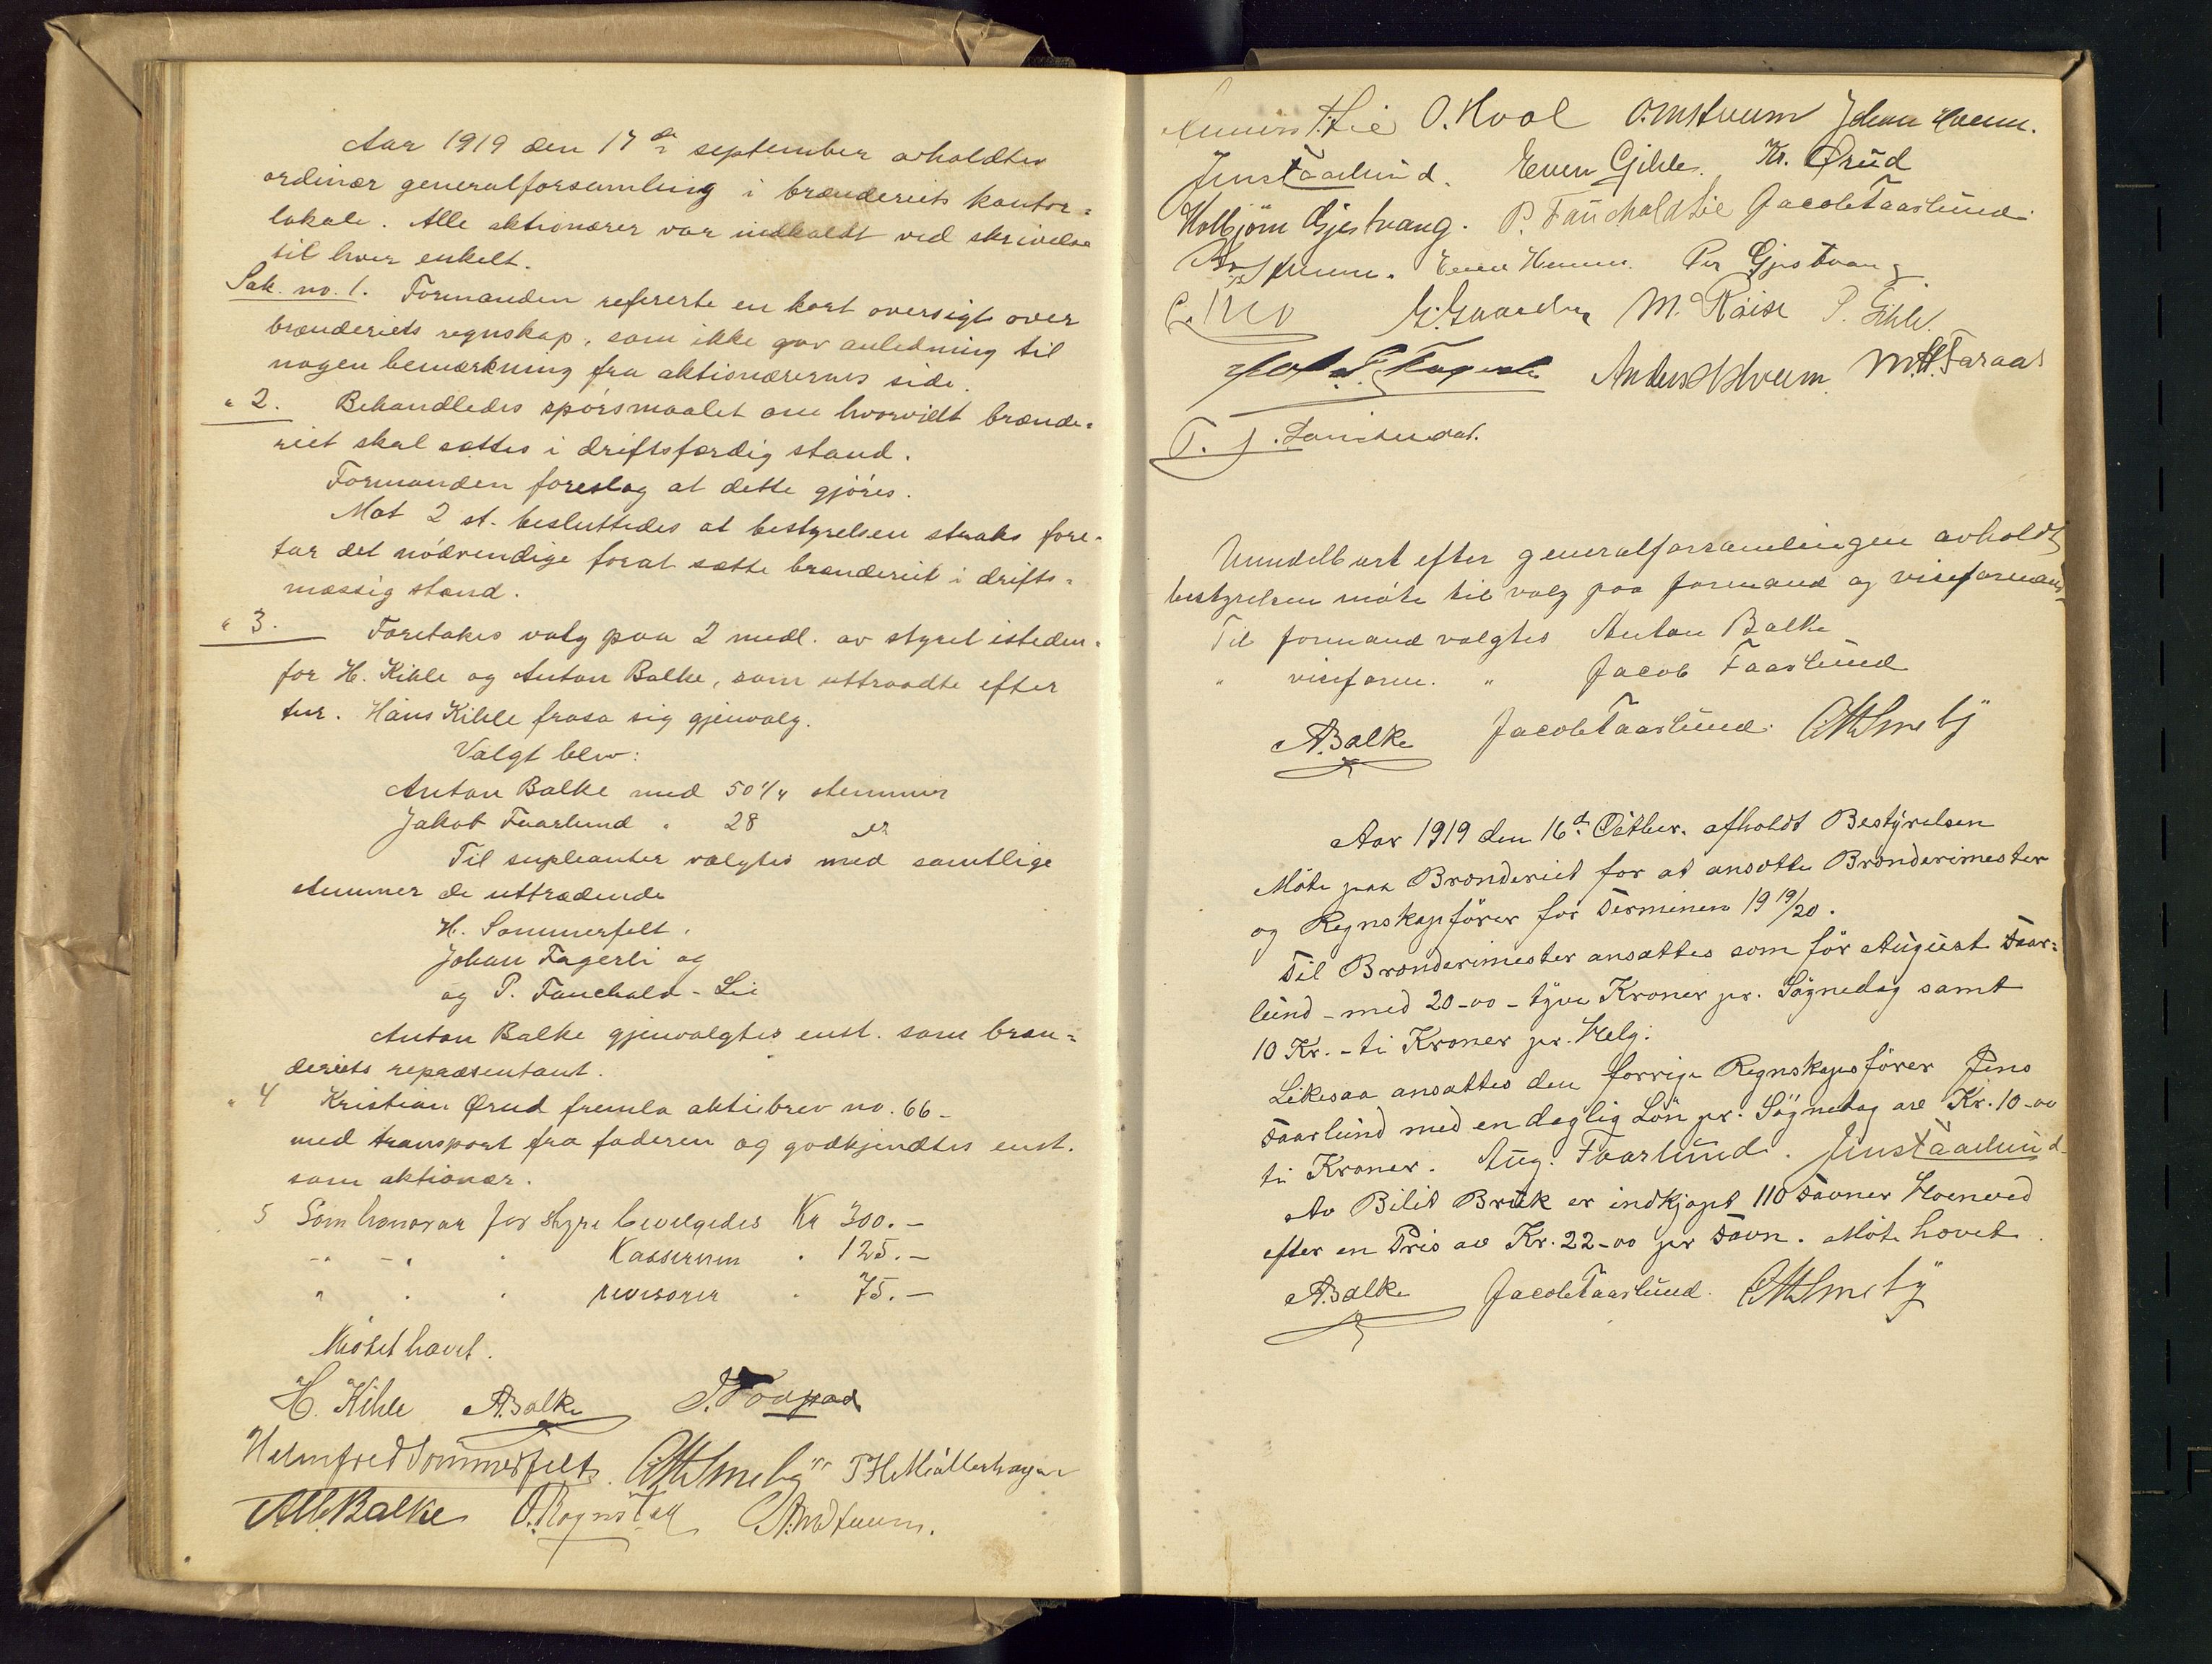 Aar 1919 den 17de september avholdtes
ordinær generalforsamling i brænderiets kontor=
lokale. Alle aktionærer var indkaldt ved skrivelse
til hver enkelt.
Sak. no. 1. Formanden refererte en kort oversigt over
brænderiets regnskap, som ikke gav anledning til
nogen bemærkning fra aktionærernes side.
" 2. Behandledes spörsmaalet om hvorvidt brænde=
riet skal sættes i driftsfærdig stand.
Formanden foreslog at dette gjöres.
Mot 2 st. besluttedes at bestyrelsen straks fore=
tar det nödvendige forat sætte brænderiet i drifts=
mæssig stand.
" 3. Foretokes valg paa 2 medl. av styret isteden=
for H. Kihle og Anton Balke, som uttraadte efter
tur. Hans Kihle frasa sig gjenvalg.
Valgt blev:
Anton Balke med 50 1/4 stemmer
Jakob Faarlund " 28 do
Til supleanter valgtes med samtlige
stemmer de uttrædende
H. Sommerfelt,
Johan Fagerli og
og P. Fauchald-Lie
Anton Balke gjenvalgtes enst. som bræn=
deriets repræsentant.
" 4 Kristian Ørud fremla aktiebrev no. 66-
med transport fra faderen og godkjendtes enst.
som aktionær.
5 Som honorar for styre bevilgedes Kr 300.-
" " " Kassereren " 125.-
" " " revisorer " 75.-
Mötet hævet.
H. Kihle A. Balke
Halmfred Sommerfelt O. M. Smeby P H Möllerhagen
Alb. Balke O. Rognstad
O. Hval O. Mstuum Johan
Jens Faarlund. Even Gihle. Kr. Ørud
Kolbjörn Gjestvang. P. Fauchald Lie Jacob Faarlund
Per Gjestvang
M. Røise P. Gihle.
Anders M. H. Faraas
Umidelbart efter generalforsamlingen avholdt
bestyrelsen möte til valg paa formand og viseformand
Til formand valgtes Anton Balke
" viseform. " Jacob Faarlund
A. Balke Jacob Faarlund. O. M. Smeby
Aar 1919 den 16d. Octber. afholdt Bestyrelsen
Möte paa Brænderiet for at ansætte Brænderimester
og Regnskapsförer for Terminen 19 19/20.
Til Brænderimester ansættes som för August Faar=
lund - med 20-00 - tyve Kroner pr. Sögnedag samt
10 Kr. - ti Kroner pr. Helg.
Likesaa ansattes den forrige Regnskapsförer Jens
Faarlund med en daglig Lön pr. Sögnedag av Kr. 10-00
ti Kroner. Aug. Faarlund. Jens Faarlund
Av Bilit Bruk er indkjøpt 110 Favner Hoenved
efter en Pris av Kr. 22-00 pr Favn. Möte hævet.
A. Balke Jacob Faarlund. O. M. Smeby